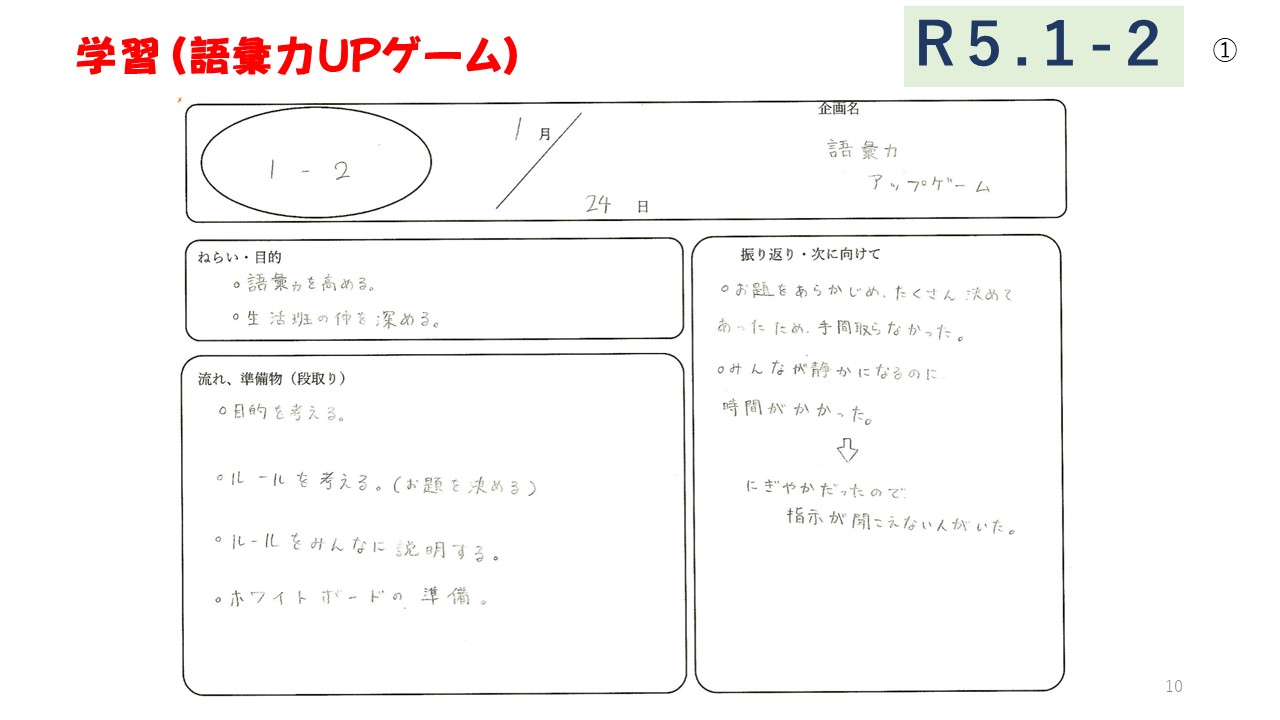 学習（語彙力UPゲーム）
R5.1-2
①
1 - 2
1月
24 日
企画名
語彙力
アップゲーム
ねらい・目的
○語彙力を高める。
○生活班の仲を深める。
流れ、準備物（段取り）
○目的を考える。
○ルールを考える。(お題を決める)
○ルールをみんなに説明する。
○ホワイトボードの準備。
振り返り・次に向けて
○お題をあらかじめ、たくさん決めて
あったため、手間取らなかった。
○みんなが静かになるのに、
時間がかかった。
⇩
にぎやかだったので、
指示が聞こえない人がいた。
10